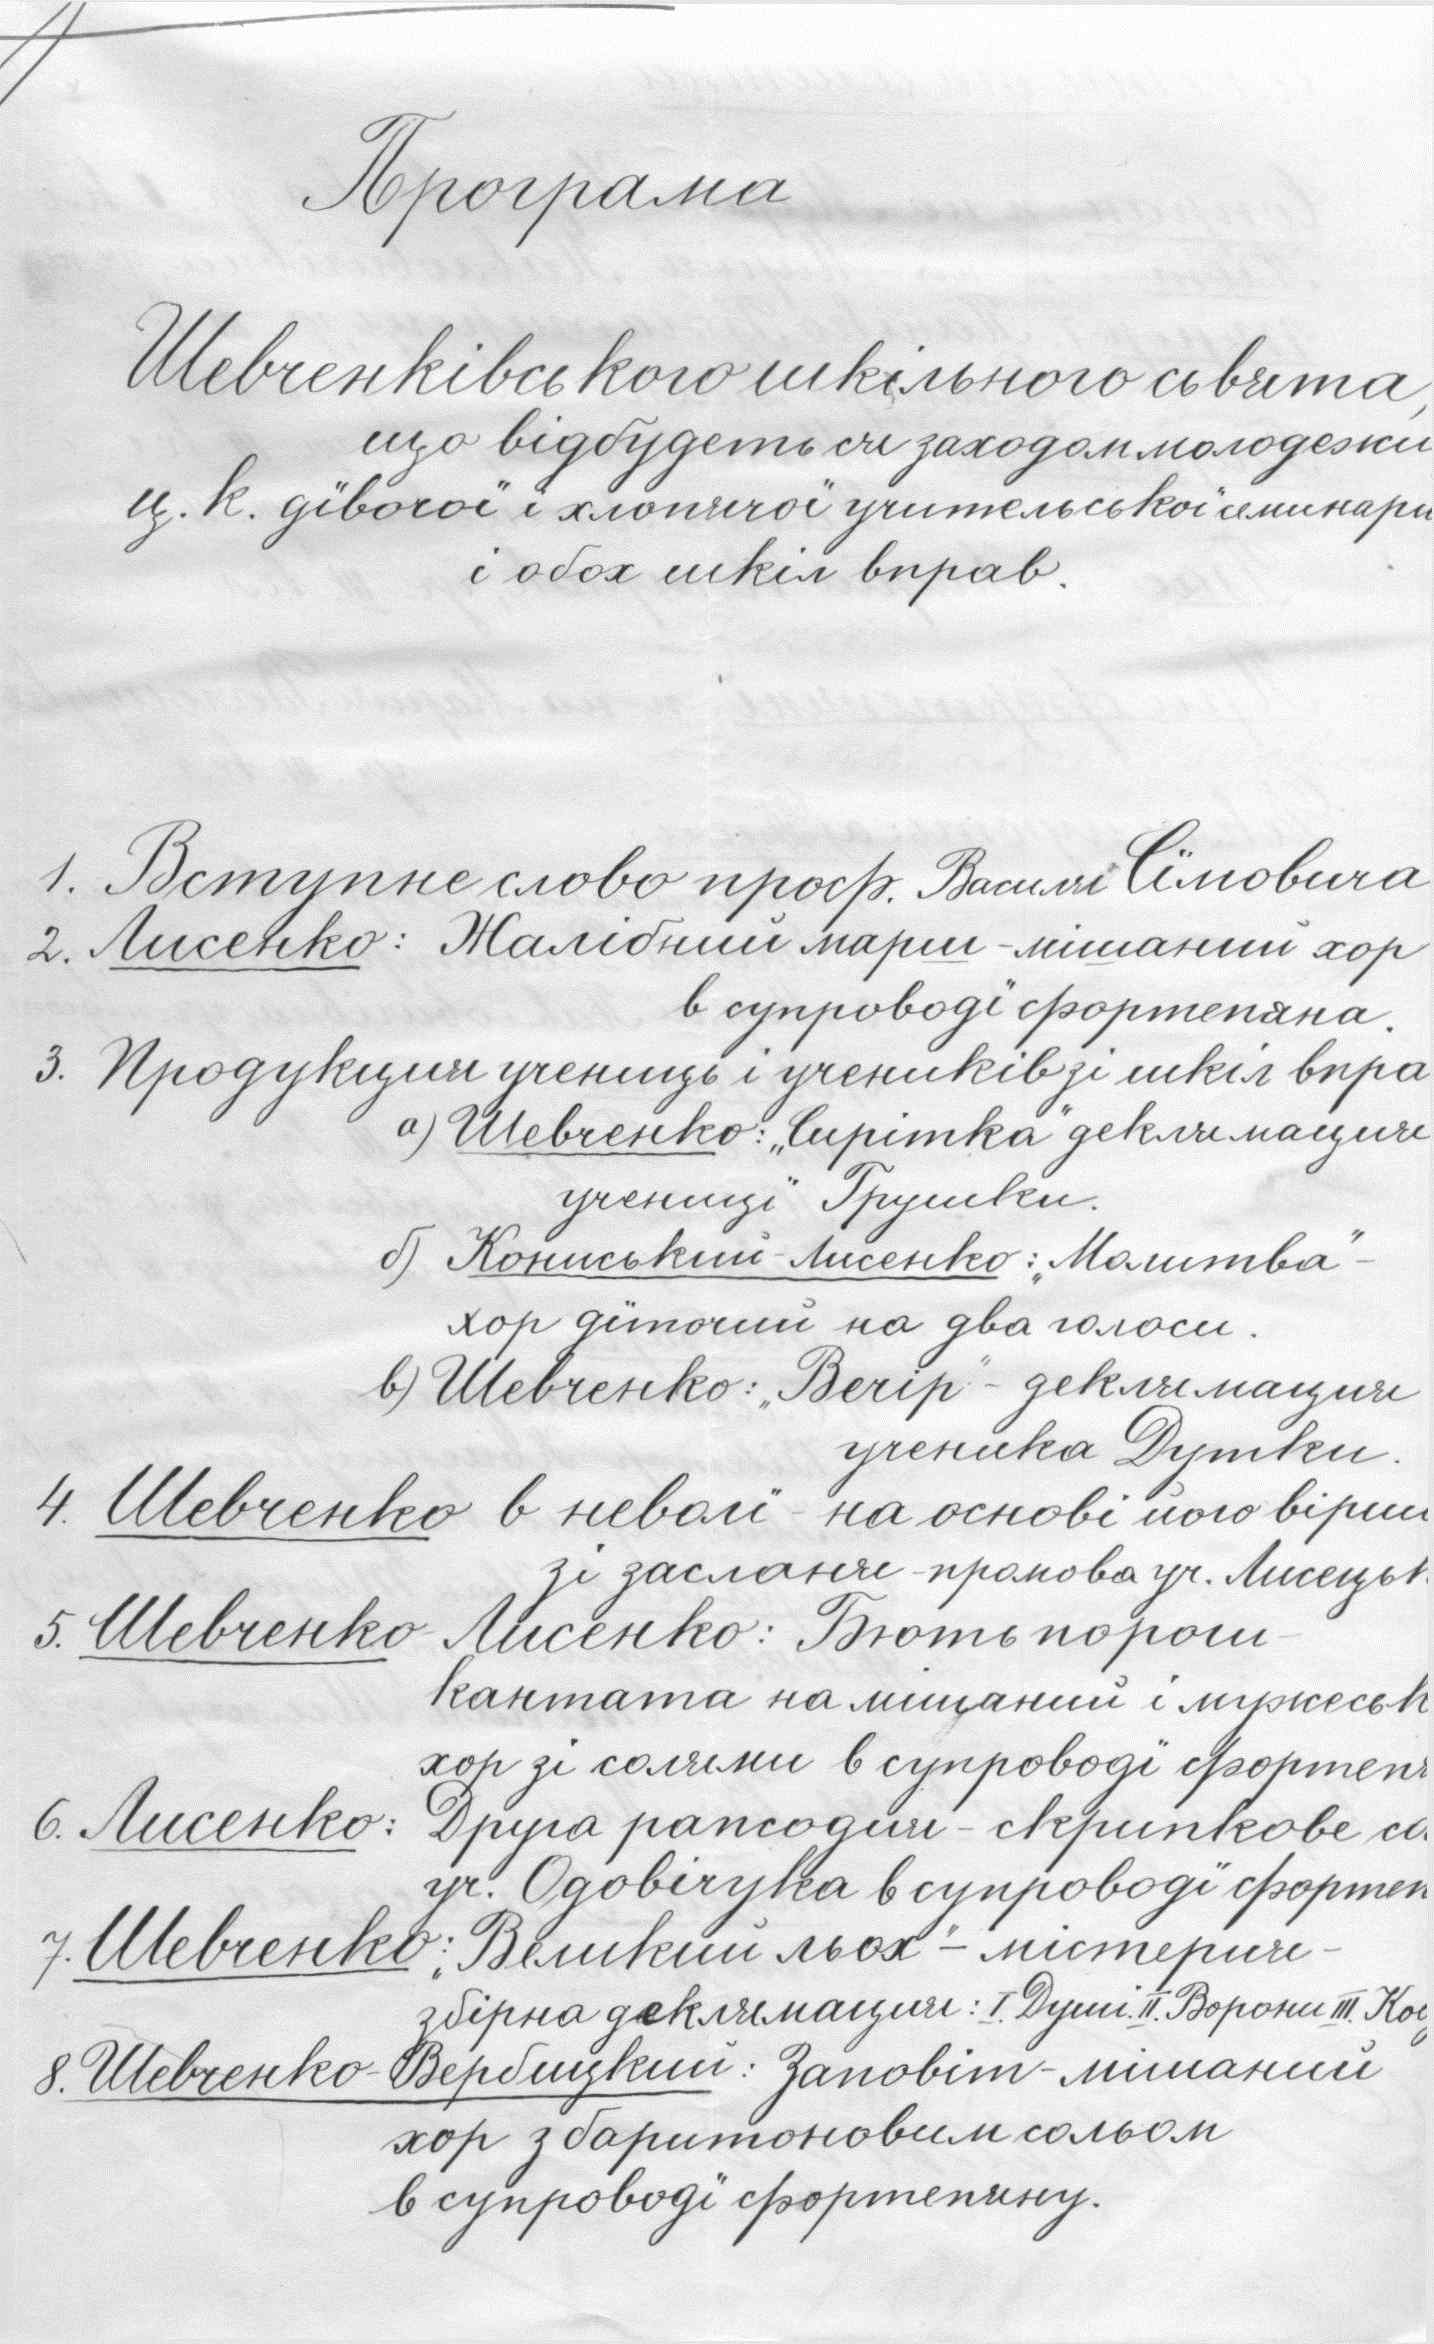 Програма
Шевченківського шкільного сьвята,
що відбудеть ся заходом молодежи
ц. к. дївочої і хлопячої учительської семинари
і обох шкіл вправ.
1. Вступне слово проф. Василя Сїмовича
2. Лисенко: Жалібний марш - мішаний хор
в супроводї фортепяна.
3. Продукция учениць і учеників зі шкіл впра
а) Шевченко: „Сирітка" деклямация
ученицї Грушки.
б) Кониський-Лисенко: „Молитва" -
хор дїточий на два голоси.
в) Шевченко: „Вечір" - деклямация
ученика Дутки.
4. Шевченко в неволї - на основі його вірш
зі засланя - промова уч. Лисецьк
5. Шевченко - Лисенко: Бють пороги -
кантата на мішаний і мужеськ
хор зі солями в супроводї фортепя
6. Лисенко: Друга рапсодия - скрипкове со
уч. Одовічука в супроводї фортеп
7. Шевченко: „Великий льох" - містерия -
збірна деклямация: I. Душі. II. Ворони III. Коб
8. Шевченко - Вербицкий: Заповіт - мішаний
хор з баритоновим сольом
в супроводї фортепяну.